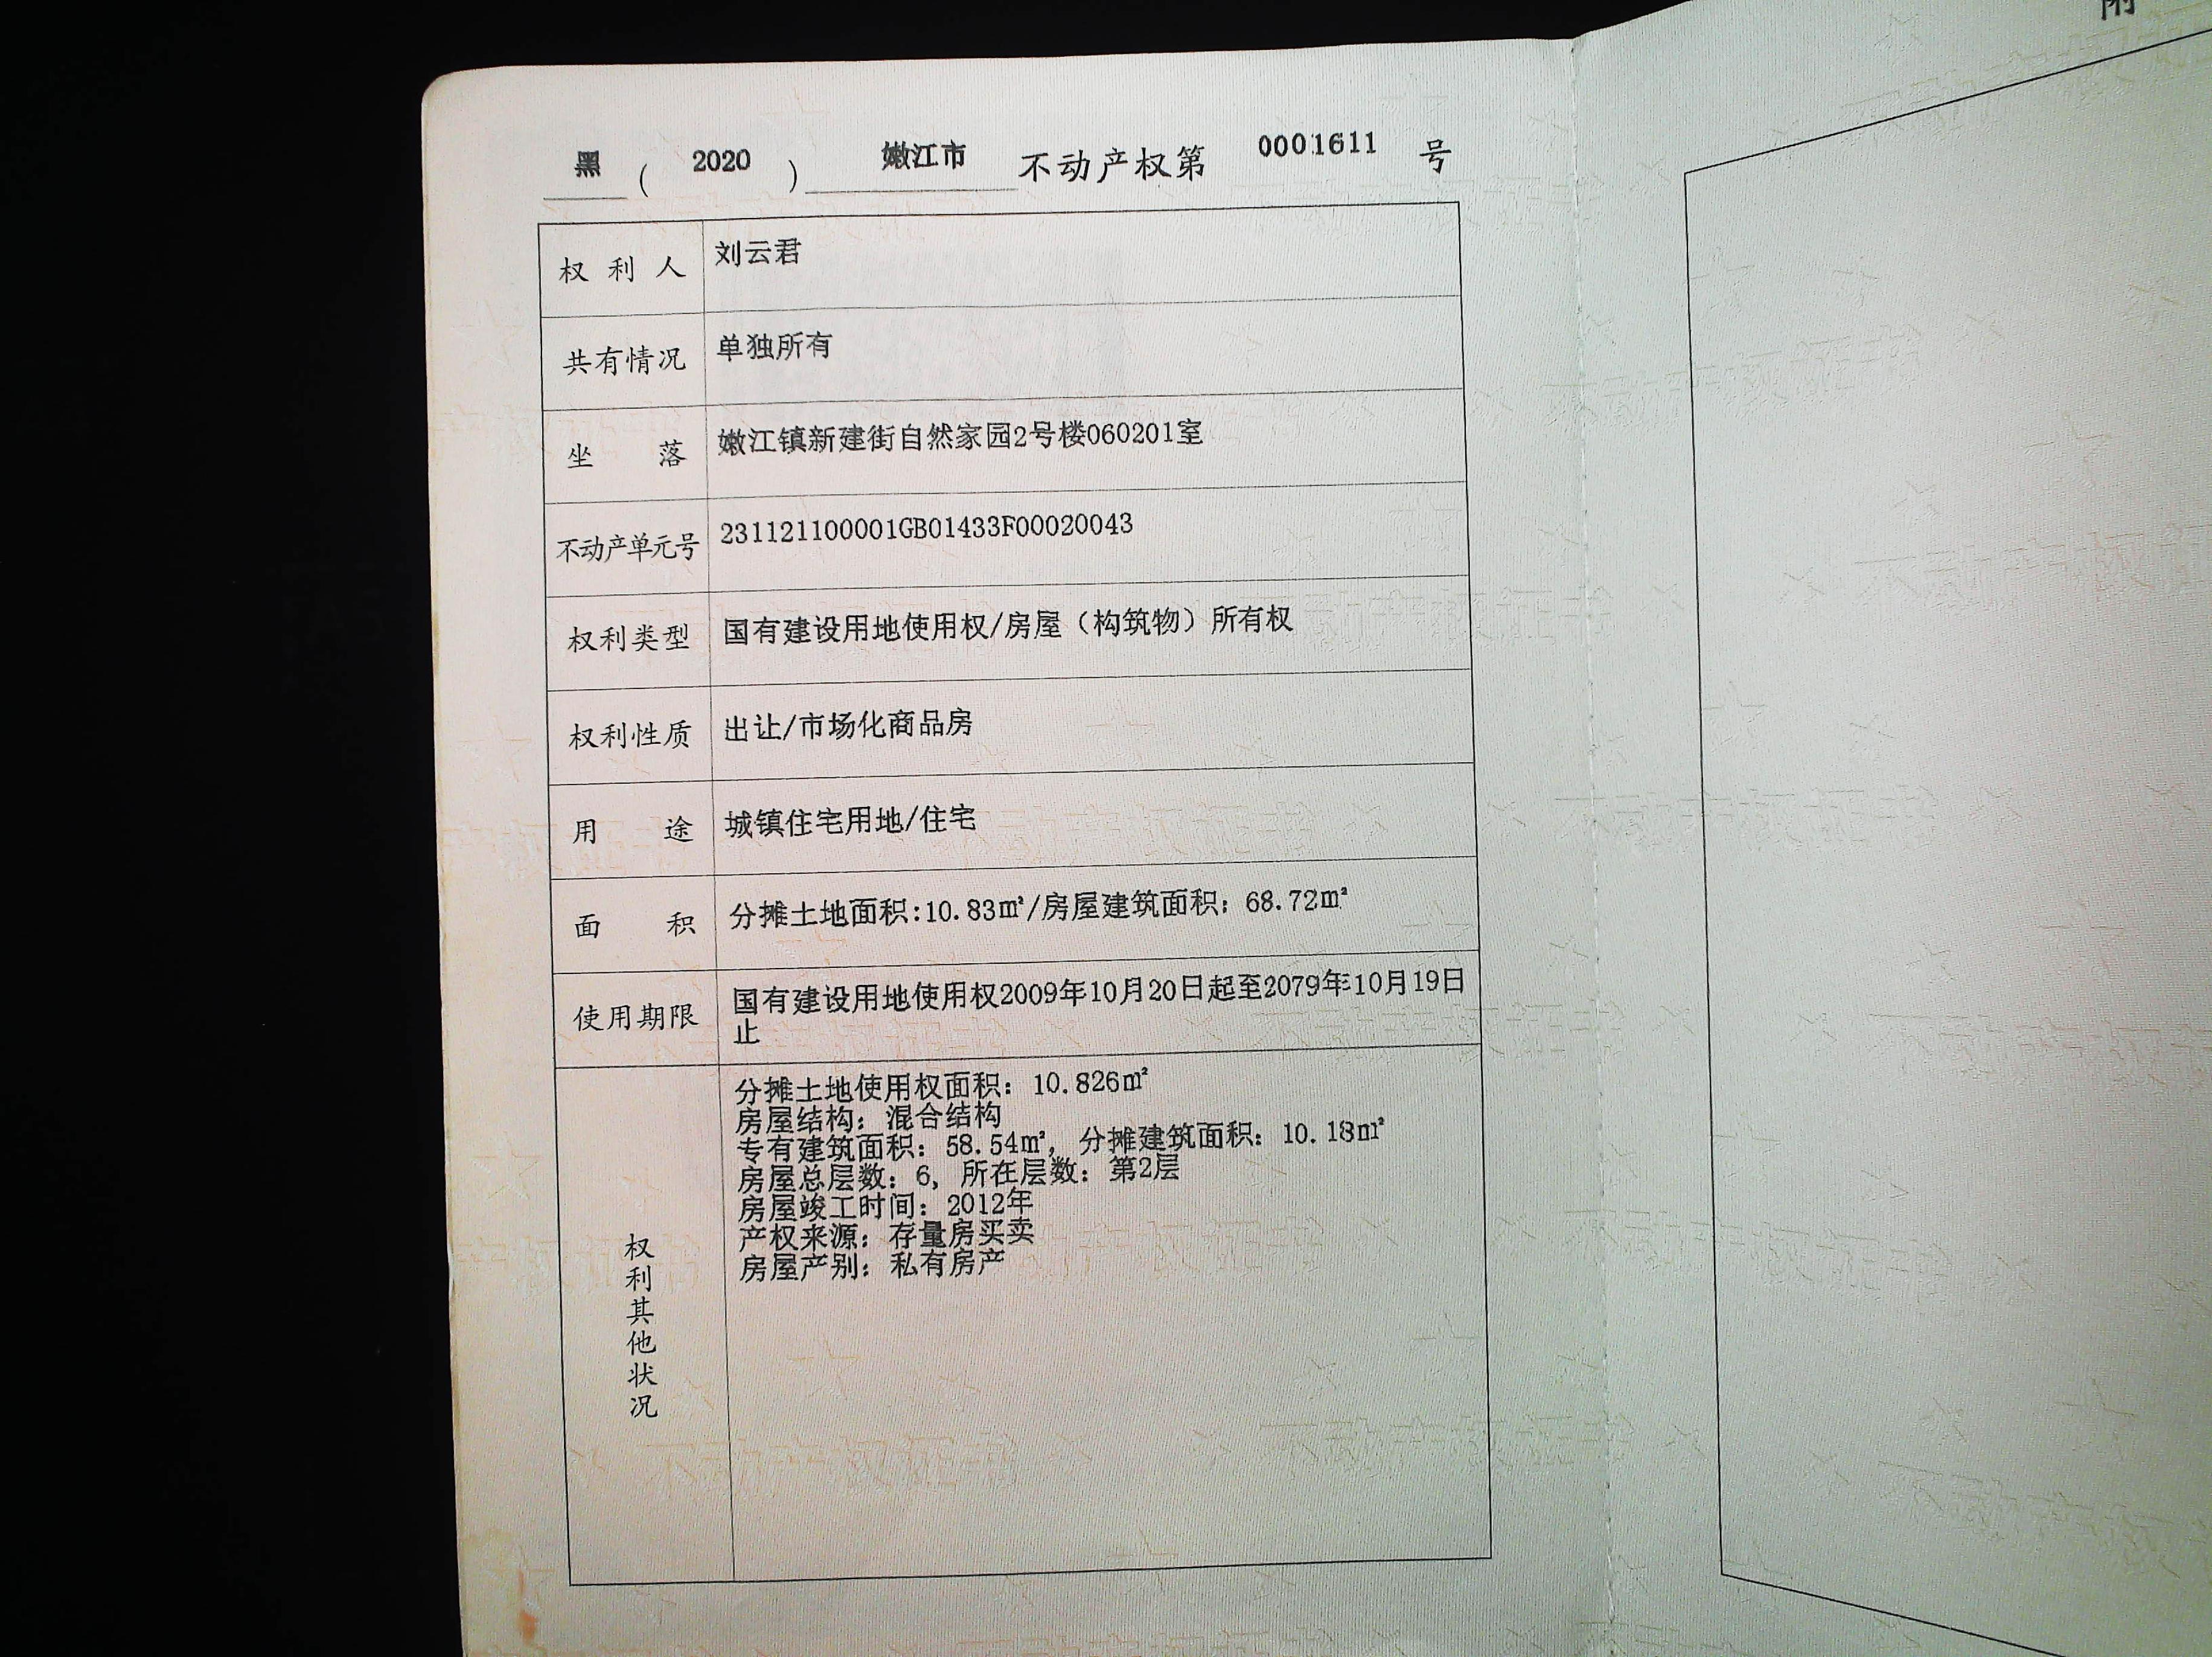 黑 ( 2020 ) 嫩江市 不动产权第 0001611 号
附
权利人 刘云君
共有情况 单独所有
坐落 嫩江镇新建街自然家园2号楼060201室
不动产单元号 231121100001GB01433F00020043
权利类型 国有建设用地使用权/房屋（构筑物）所有权
权利性质 出让/市场化商品房
用途 城镇住宅用地/住宅
面积 分摊土地面积:10.83㎡/房屋建筑面积：68.72㎡
使用期限 国有建设用地使用权2009年10月20日起至2079年10月19日
止
权利其他状况
分摊土地使用权面积：10.826㎡
房屋结构：混合结构
专有建筑面积：58.54㎡，分摊建筑面积：10.18㎡
房屋总层数：6，所在层数：第2层
房屋竣工时间：2012年
产权来源：存量房买卖
房屋产别：私有房产